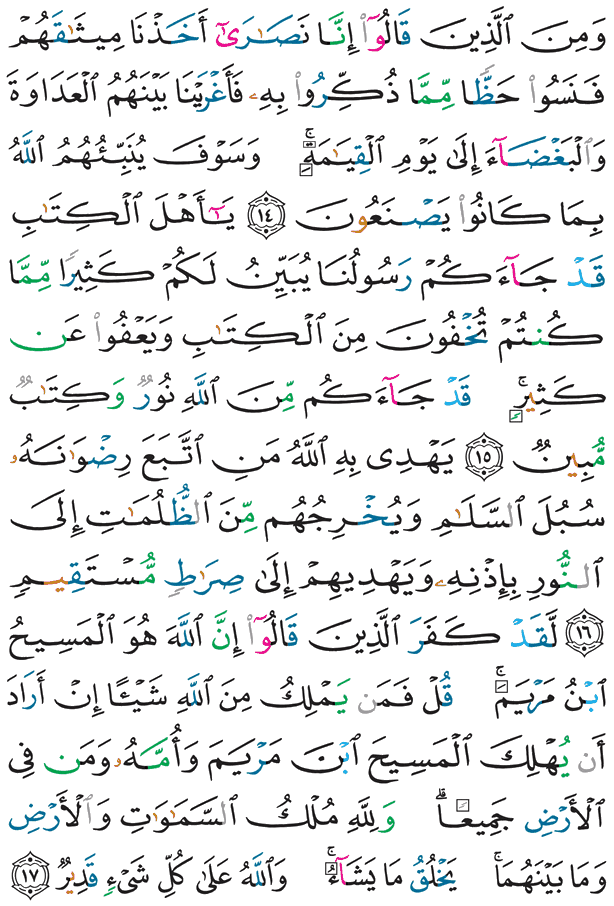 وَمِنَ ٱلَّذِينَ قَالُوٓا۟ إِنَّا نَصَـٰرَىٰٓ أَخَذْنَا مِيثَـٰقَهُمْ
فَنَسُوا۟ حَظًّا مِّمَّا ذُكِّرُوا۟ بِهِۦ فَأَغْرَيْنَا بَيْنَهُمُ ٱلْعَدَاوَةَ
وَٱلْبَغْضَآءَ إِلَىٰ يَوْمِ ٱلْقِيَـٰمَةِ ۚ وَسَوْفَ يُنَبِّئُهُمُ ٱللَّهُ
بِمَا كَانُوا۟ يَصْنَعُونَ ١٤ يَـٰٓأَهْلَ ٱلْكِتَـٰبِ
قَدْ جَآءَكُمْ رَسُولُنَا يُبَيِّنُ لَكُمْ كَثِيرًا مِّمَّا
كُنتُمْ تُخْفُونَ مِنَ ٱلْكِتَـٰبِ وَيَعْفُوا۟ عَن
كَثِيرٍ ۚ قَدْ جَآءَكُم مِّنَ ٱللَّهِ نُورٌ وَكِتَـٰبٌ
مُّبِينٌ ١٥ يَهْدِى بِهِ ٱللَّهُ مَنِ ٱتَّبَعَ رِضْوَٰنَهُۥ
سُبُلَ ٱلسَّلَـٰمِ وَيُخْرِجُهُم مِّنَ ٱلظُّلُمَـٰتِ إِلَى
ٱلنُّورِ بِإِذْنِهِۦ وَيَهْدِيهِمْ إِلَىٰ صِرَٰطٍ مُّسْتَقِيمٍ
١٦ لَّقَدْ كَفَرَ ٱلَّذِينَ قَالُوٓا۟ إِنَّ ٱللَّهَ هُوَ ٱلْمَسِيحُ
ٱبْنُ مَرْيَمَ ۚ قُلْ فَمَن يَمْلِكُ مِنَ ٱللَّهِ شَيْـًٔا إِنْ أَرَادَ
أَن يُهْلِكَ ٱلْمَسِيحَ ٱبْنَ مَرْيَمَ وَأُمَّهُۥ وَمَن فِى
ٱلْأَرْضِ جَمِيعًا ۗ وَلِلَّهِ مُلْكُ ٱلسَّمَـٰوَٰتِ وَٱلْأَرْضِ
وَمَا بَيْنَهُمَا ۚ يَخْلُقُ مَا يَشَآءُ ۚ وَٱللَّهُ عَلَىٰ كُلِّ شَىْءٍ قَدِيرٌ ١٧